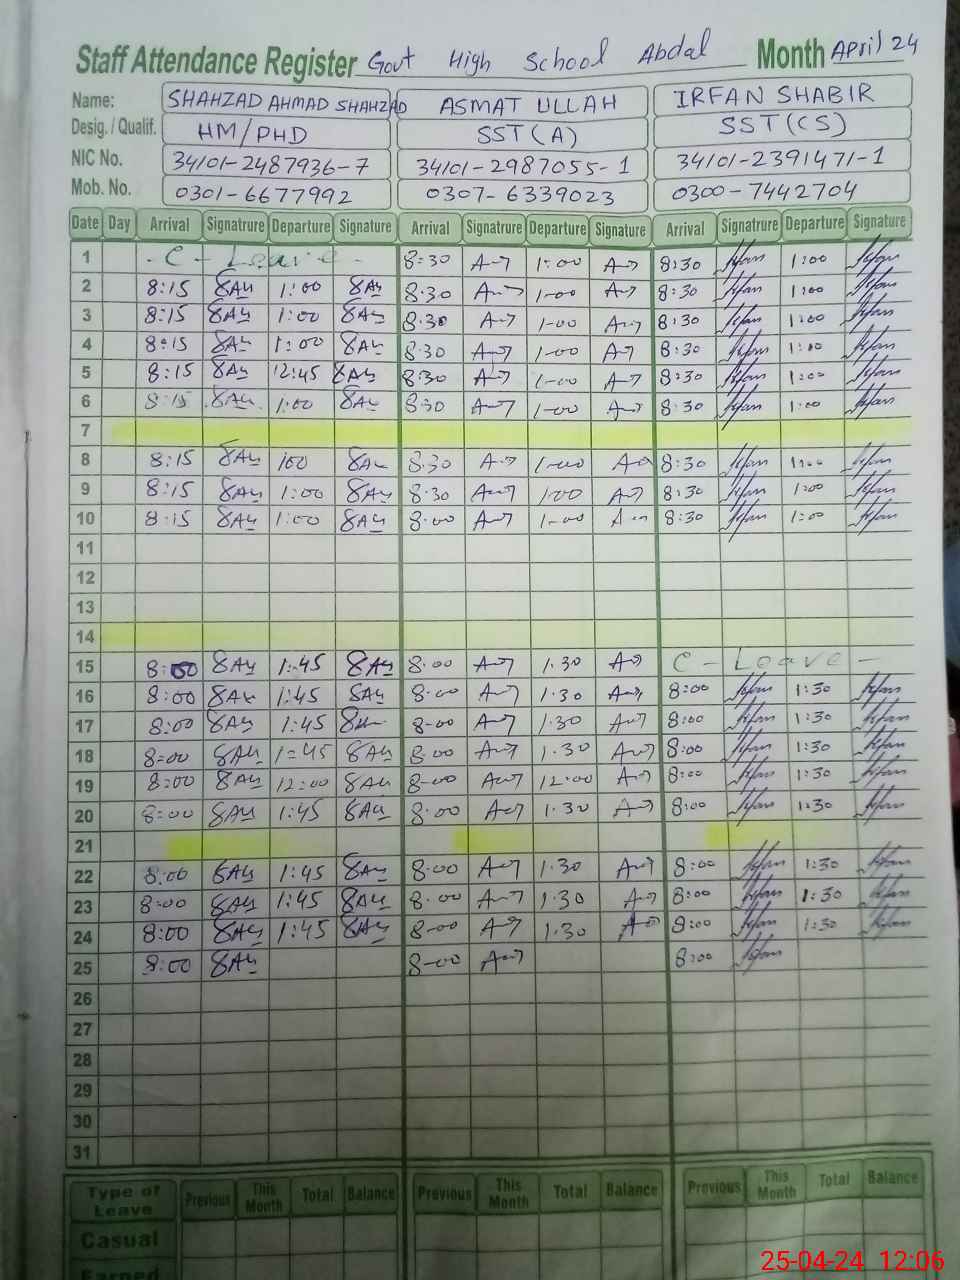 Staff Attendance Register Govt High School Abdal Month April 24
Name: SHAHZAD AHMAD SHAHZAD ASMAT ULLAH IRFAN SHABIR
Desig. / Qualif. HM/PHD SST(A) SST(CS)
NIC No. 34101-2487936-7 34101-2987055-1 34101-2391471-1
Mob. No. 0301-6677992 0307-6339023 0300-7442704
Date Day Arrival Signatrure Departure Signature Arrival Signatrure Departure Signature Arrival Signatrure Departure Signature
1 - C - Leave - 8:30 1:00 8:30 1:00
2 8:15 1:00 8:30 1-00 8:30 1:00
3 8:15 1:00 8:30 1-00 8:30 1:00
4 8:15 1:00 8:30 1-00 8:30 1:00
5 8:15 12:45 8:30 1-00 8:30 1:00
6 8:15 1:00 8:30 1-00 8:30 1:00
7
8 8:15 100 8:30 1-00 8:30 1:00
9 8:15 1:00 8:30 1:00 8:30 1:00
10 8:15 1:00 8:00 1-00 8:30 1:00
11
12
13
14
15 8:00 1:45 8:00 1.30 C - Leave -
16 8:00 1:45 8-00 1.30 8:00 1:30
17 8:00 1:45 8-00 1.30 8:00 1:30
18 8=00 1=45 8.00 1.30 8:00 1:30
19 8:00 12:00 8-00 12:00 8:00 1:30
20 8:00 1:45 8:00 1.30 8:00 1:30
21
22 8:00 1:45 8:00 1.30 8:00 1:30
23 8:00 1:45 8.00 1.30 8:00 1:30
24 8:00 1:45 8-00 1.30 8:00 1:30
25 8:00 8-00 8:00
26
27
28
29
30
31
Type of Leave Previous This Month Total Balance Previous This Month Total Balance Previous This Month Total Balance
Casual
Earned
25-04-24 12:06